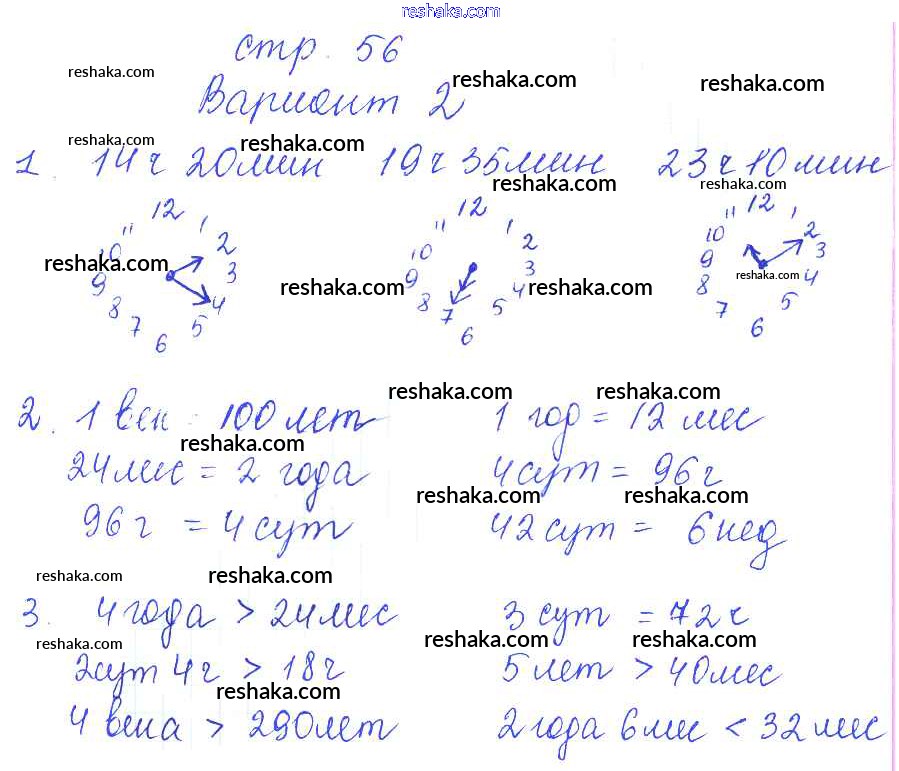 reshaka.com
стр. 56
reshaka.com
reshaka.com
reshaka.com
Вариант 2
reshaka.com
reshaka.com
1. 14ч 20мин 19ч 35мин 23ч 10мин
reshaka.com
reshaka.com
12 1 2 3 4 5 6 7 8 9 10 11
12 1 2 3 4 5 6 7 8 9 10 11
12 1 2 3 4 5 6 7 8 9 10 11
reshaka.com
reshaka.com
reshaka.com
reshaka.com
reshaka.com
reshaka.com
2. 1 век = 100 лет 1 год = 12 мес
reshaka.com
24мес = 2 года 4сут = 96 г
reshaka.com
reshaka.com
96 г = 4 сут 42 сут = 6 нед
reshaka.com
reshaka.com
3. 4 года > 24мес 3 сут = 72 ч
reshaka.com
reshaka.com
reshaka.com
2сут 4г > 18г 5 лет > 40мес
reshaka.com
4 века > 290лет 2 года 6 мес < 32 мес